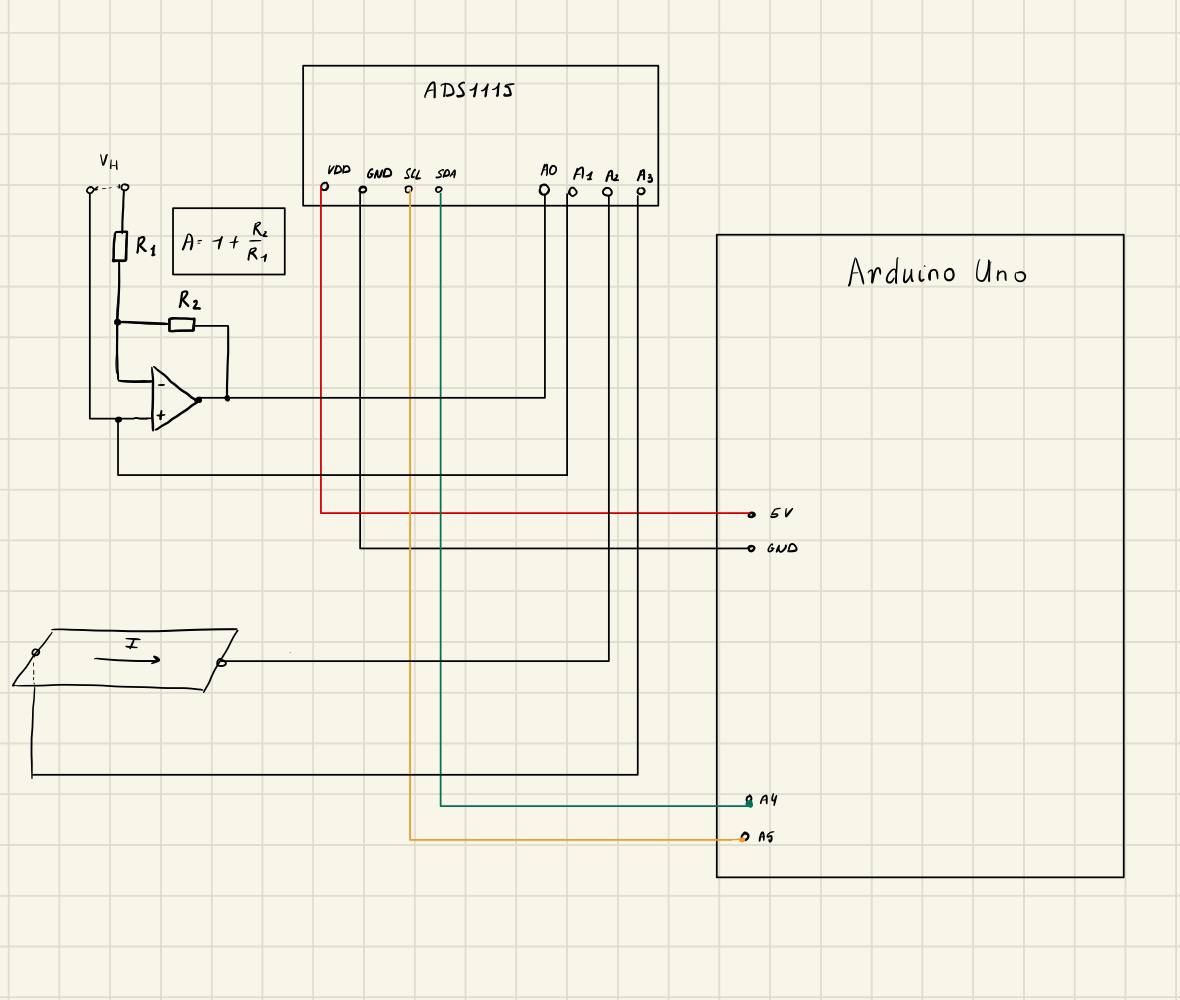 ADS1115
VDD GND SCL SDA A0 A1 A2 A3
VH
R1
A = 1 + R2/R1
R2
-
+
Arduino Uno
5V
GND
I
A4
A5